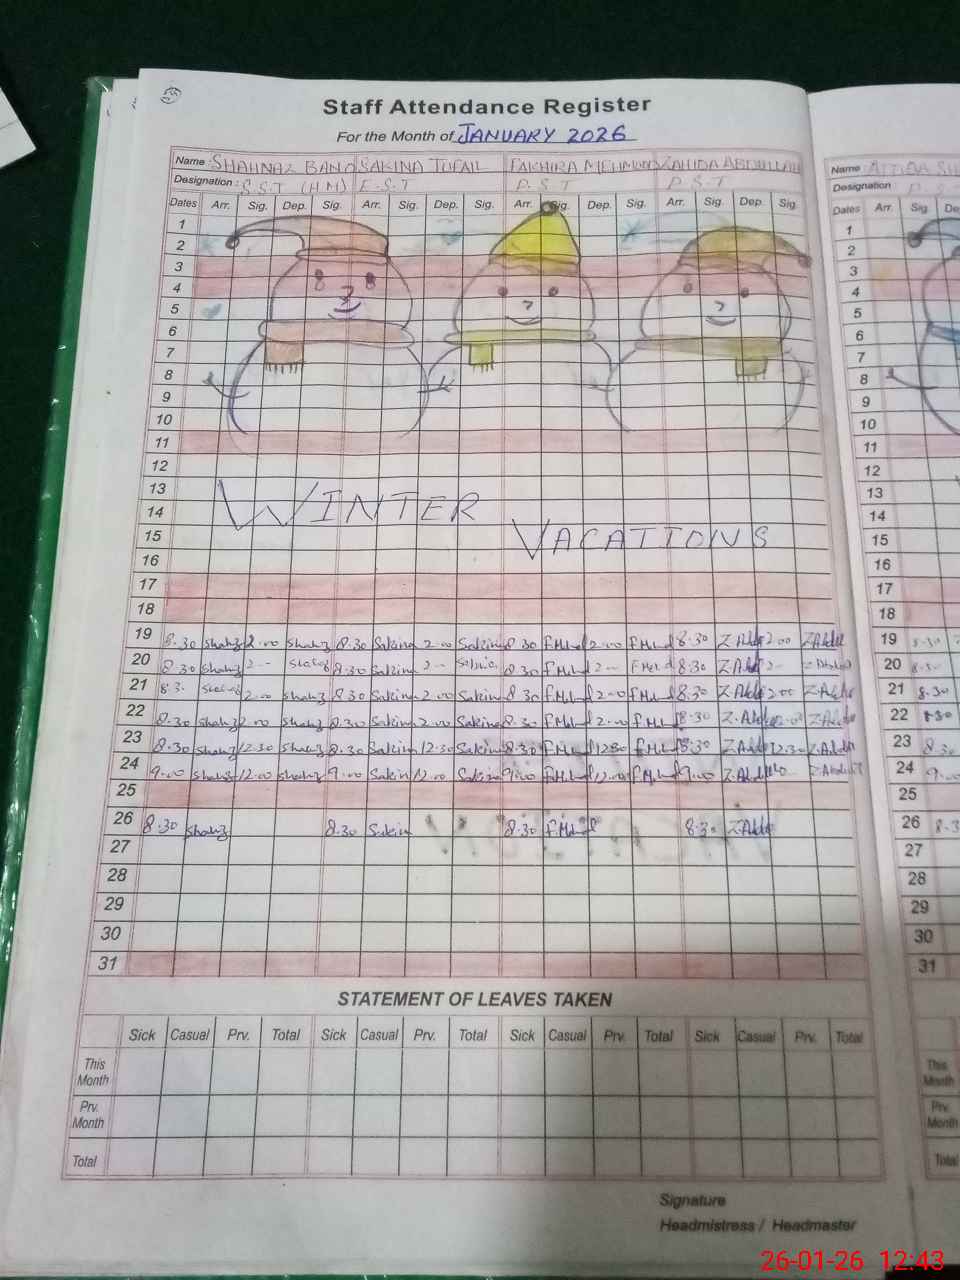 Staff Attendance Register
For the Month of JANUARY 2026
Name : SHAHNAZ BANO SAKINA TUFAIL FAKHIRA MEHMOOD ZAHIDA ABDULLAH Name
Designation : S.S.T (HM) E.S.T P.S.T P.S.T Designation P.S.T
Dates Arr. Sig. Dep. Sig. Arr. Sig. Dep. Sig. Arr. Sig. Dep. Sig. Arr. Sig. Dep. Sig. Dates Arr. Sig.
1 1
2 2
3 3
4 4
5 5
6 6
7 7
8 8
9 9
10 10
11 11
12 12
13 13
WINTER
14 14
VACATIONS
15 15
16 16
17 17
18 18
19 8.30 Shahz 2.00 Shahz 8.30 Sakina 2.00 Sakina 8.30 2.00 8.30 2.00 19 8.30
20 8.30 Shahz 2-- 8.30 Sakina 2-- 8.30 2-- 8.30 2-- 20 8.30
21 8.3. 2.00 Shahz 8.30 Sakina 2.00 Sakina 8.30 2.00 8.30 2.00 21 8.30
22 8.30 Shahz 2.00 Shahz 8.30 Sakina 2.00 Sakina 8.30 2.00 8.30 2.00 22 8.30
23 8.30 Shahz 12.30 Shahz 8.30 Sakina 12.30 Sakina 8.30 12.30 8.30 12.30 23 8.30
24 9.00 Shahz 12.00 Shahz 9.00 Sakina 12.00 Sakina 9.00 12.00 9.00 24 9.00
25 25
26 8.30 Shahz 8.30 Sakina 8.30 8.30 26 8.3
27 27
28 28
29 29
30 30
31 31
STATEMENT OF LEAVES TAKEN
Sick Casual Prv. Total Sick Casual Prv. Total Sick Casual Prv. Total Sick Casual Prv. Total
This Month This Month
Prv. Month Prv. Month
Total Total
Signature
Headmistress / Headmaster
26-01-26 12:43